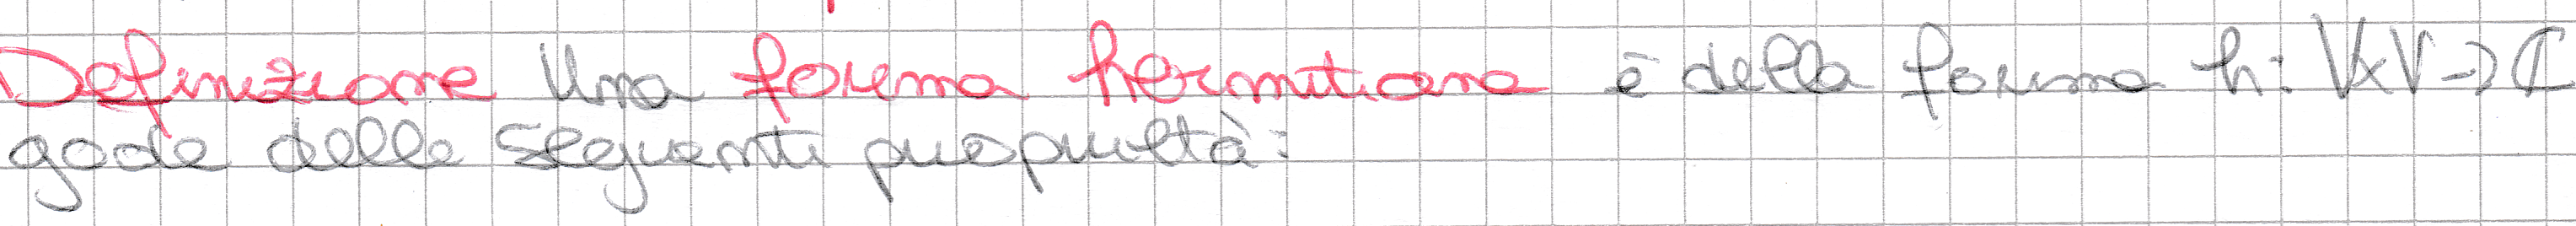 Definizione Una forma hermitiana è della forma h: V×V→ℂ
gode delle seguenti proprietà: